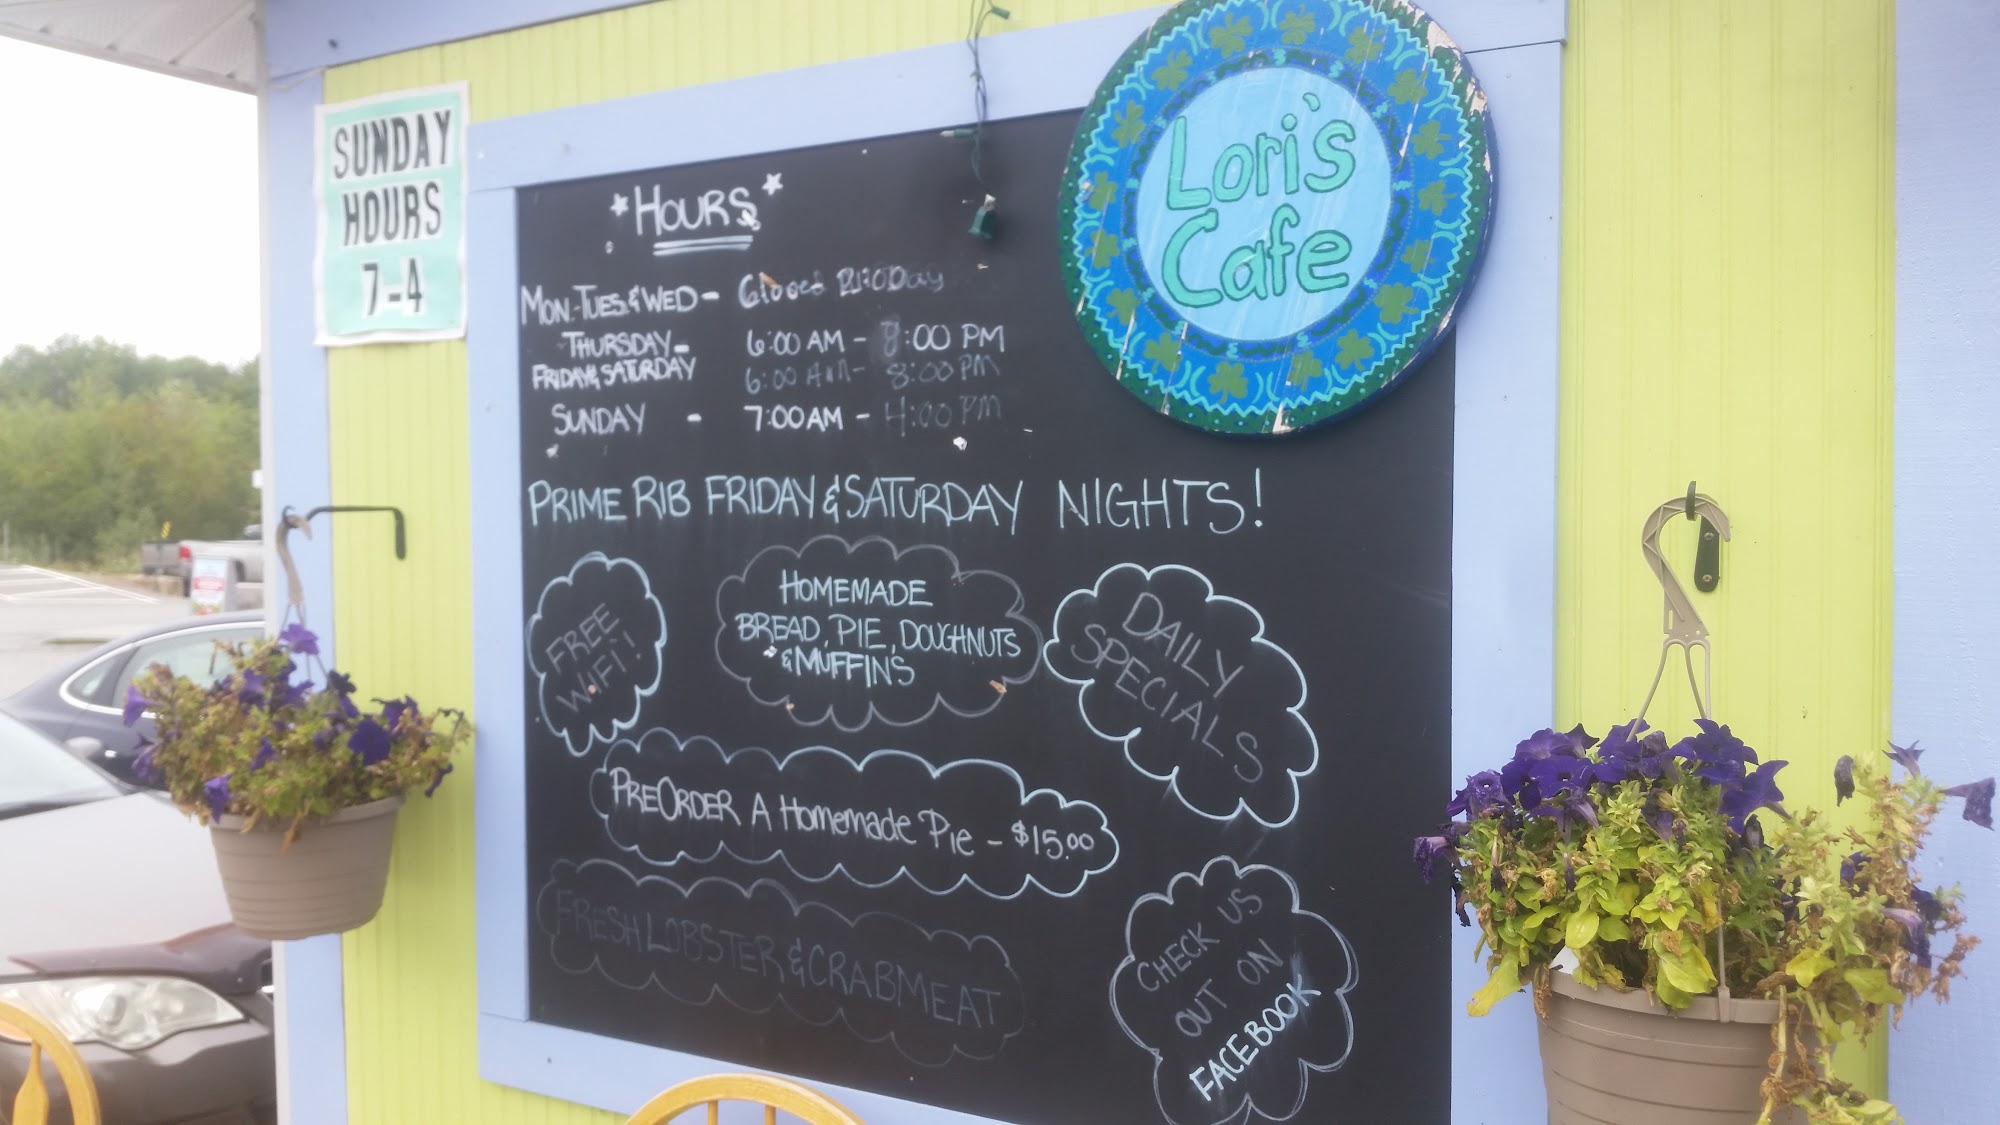 SUNDAY
HOURS
7-4
Lori's
Cafe
*HOURS*
MON.-TUES & WED -
THURSDAY - 6:00 AM - 8:00 PM
FRIDAY & SATURDAY 6:00 AM - 8:00 PM
SUNDAY - 7:00 AM - 4:00 PM
PRIME RIB FRIDAY & SATURDAY NIGHTS!
FREE
WIFI!
HOMEMADE
BREAD, PIE, DOUGHNUTS
& MUFFINS
DAILY
SPECIALS
PREORDER A HomemADe PIE - $15.00
FRESH LOBSTER & CRABMEAT
CHECK US
OUT ON
FACEBOOK